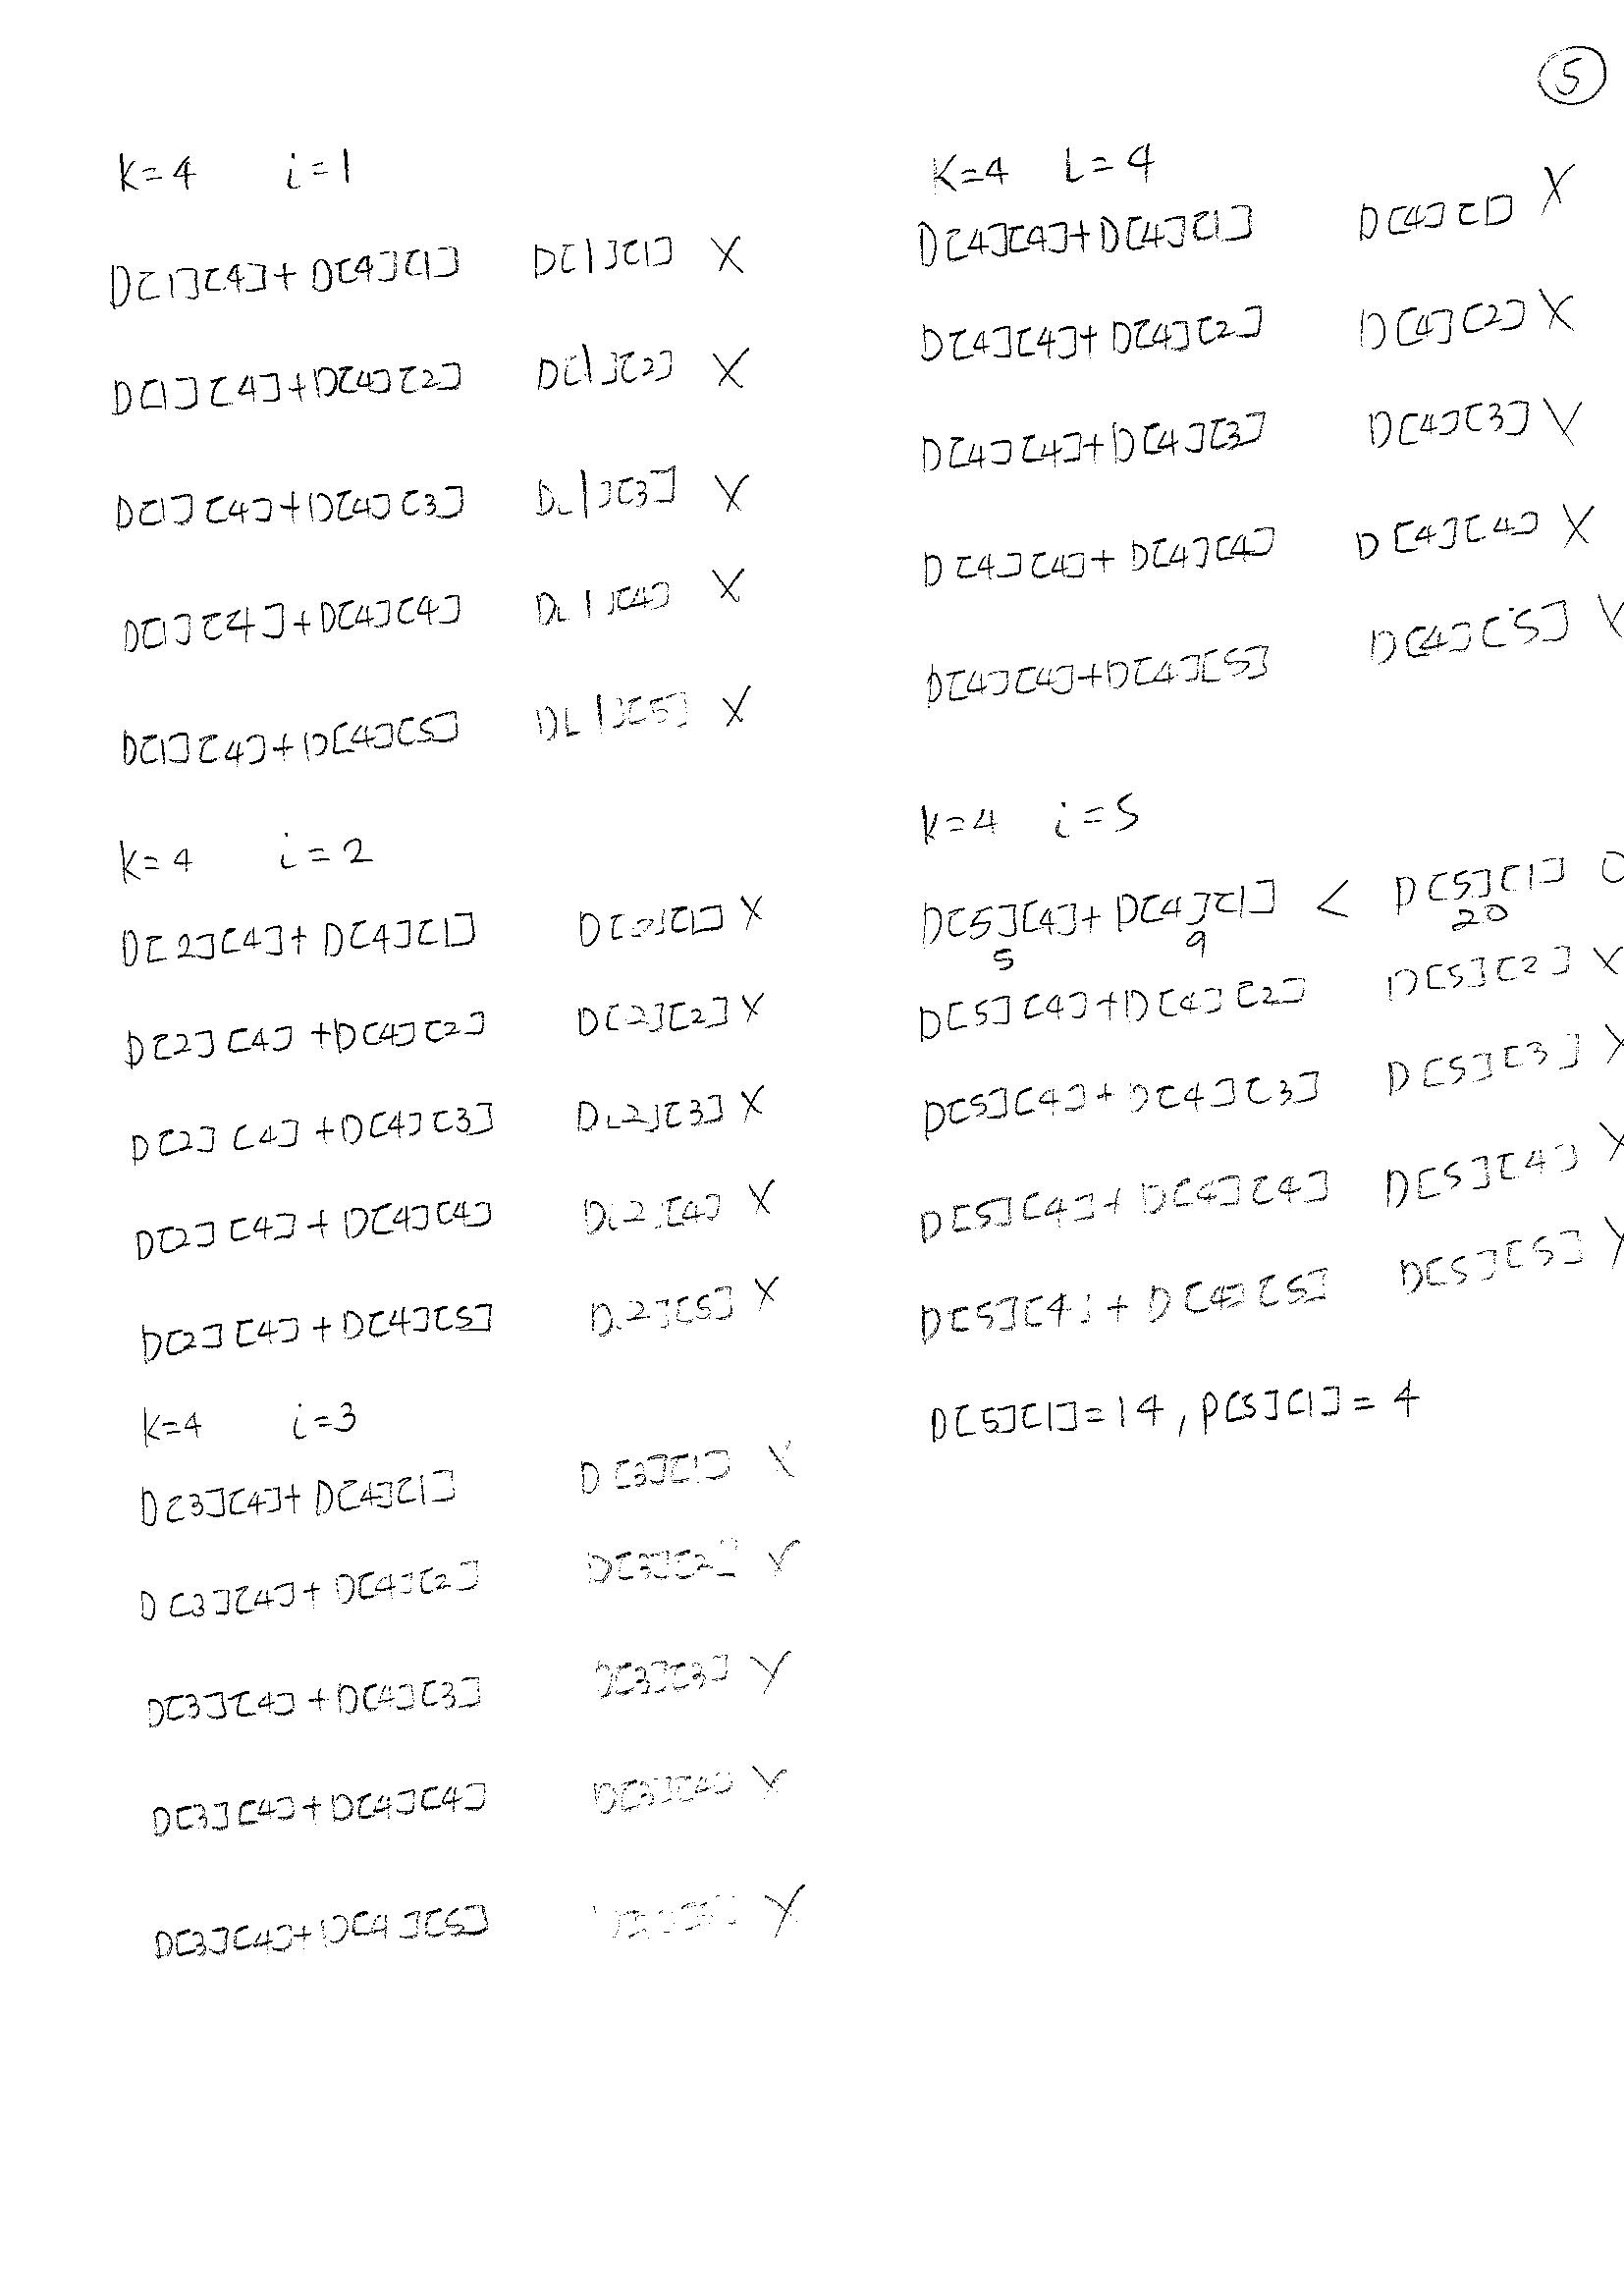 5
K=4 i=1
D[1][4]+D[4][1] D[1][1] X
D[1][4]+D[4][2] D[1][2] X
D[1][4]+D[4][3] D[1][3] X
D[1][4]+D[4][4] D[1][4] X
D[1][4]+D[4][5] D[1][5] X
K=4 i=2
D[2][4]+D[4][1] D[2][1] X
D[2][4]+D[4][2] D[2][2] X
D[2][4]+D[4][3] D[2][3] X
D[2][4]+D[4][4] D[2][4] X
D[2][4]+D[4][5] D[2][5] X
K=4 i=3
D[3][4]+D[4][1] D[3][1] X
D[3][4]+D[4][2] D[3][2] X
D[3][4]+D[4][3] D[3][3] X
D[3][4]+D[4][4] D[3][4] X
D[3][4]+D[4][5] X
K=4 i=4
D[4][4]+D[4][1] D[4][1] X
D[4][4]+D[4][2] D[4][2] X
D[4][4]+D[4][3] D[4][3] X
D[4][4]+D[4][4] D[4][4] X
D[4][4]+D[4][5] D[4][5] X
K=4 i=5
D[5][4]+D[4][1] < D[5][1] O
5 9 20
D[5][4]+D[4][2] D[5][2] X
D[5][4]+D[4][3] D[5][3] X
D[5][4]+D[4][4] D[5][4] X
D[5][4]+D[4][5] D[5][5] X
D[5][1]=14, P[5][1]=4